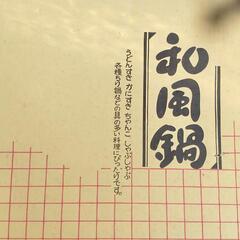 和風鍋
うどんすき かにすき ちゃんこ しゃぶしゃぶ
各種ちり鍋などの具の多い料理にぴったりです。